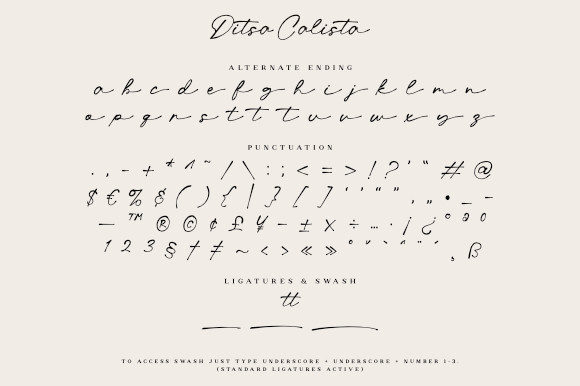 Ditsa Calista
ALTERNATE ENDING
a b c d e f g h i j k l m n
o p q r s t t u v w x y z
PUNCTUATION
. , - + * ^ ~ / \ : ; < = > ! ? ' " # @
$ € % & ( ) { | } [ ] ‘ ’ “ ” ‚ „ • _ –
— ™ ® © ¢ £ ¥ − ± × ÷ … · ¡ ¿ ° ª º
¹ ² ³ § † ‡ ~ ‹ › « » ° ˇ ` ^ ¨ ´ ¸ ß
LIGATURES & SWASH
tt
TO ACCESS SWASH JUST TYPE UNDERSCORE + UNDERSCORE + NUMBER 1-3.
(STANDARD LIGATURES ACTIVE)